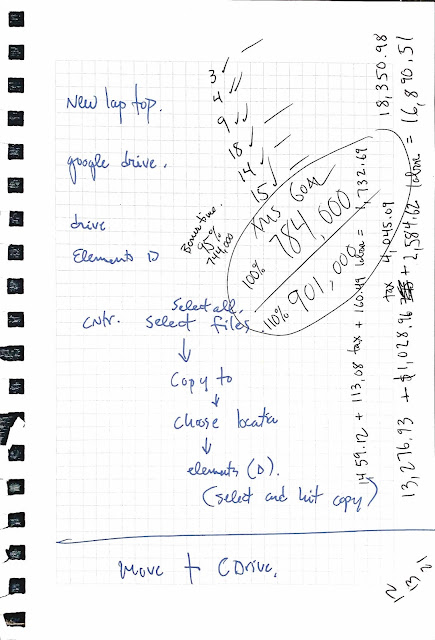 New laptop.
google drive.
drive
Elements D
Select all.
cntr. select files
Copy to
choose locatn
elements (D).
(select and hit copy)
move + C Drive.
3 ✓ —
4 ✓
9 ✓✓ —
18 ✓
14 ✓ —
15 ✓ —
95%
744,000
Goal
100% 784,000
110% 901,000
1459.12 + 113.08 tax + 160.49 labour = 1,732.69
tax 4,045.09
18,350.98
13,276.93 + $1,028.96 + 2,584.62 labour = 16,890.51
12
13
21